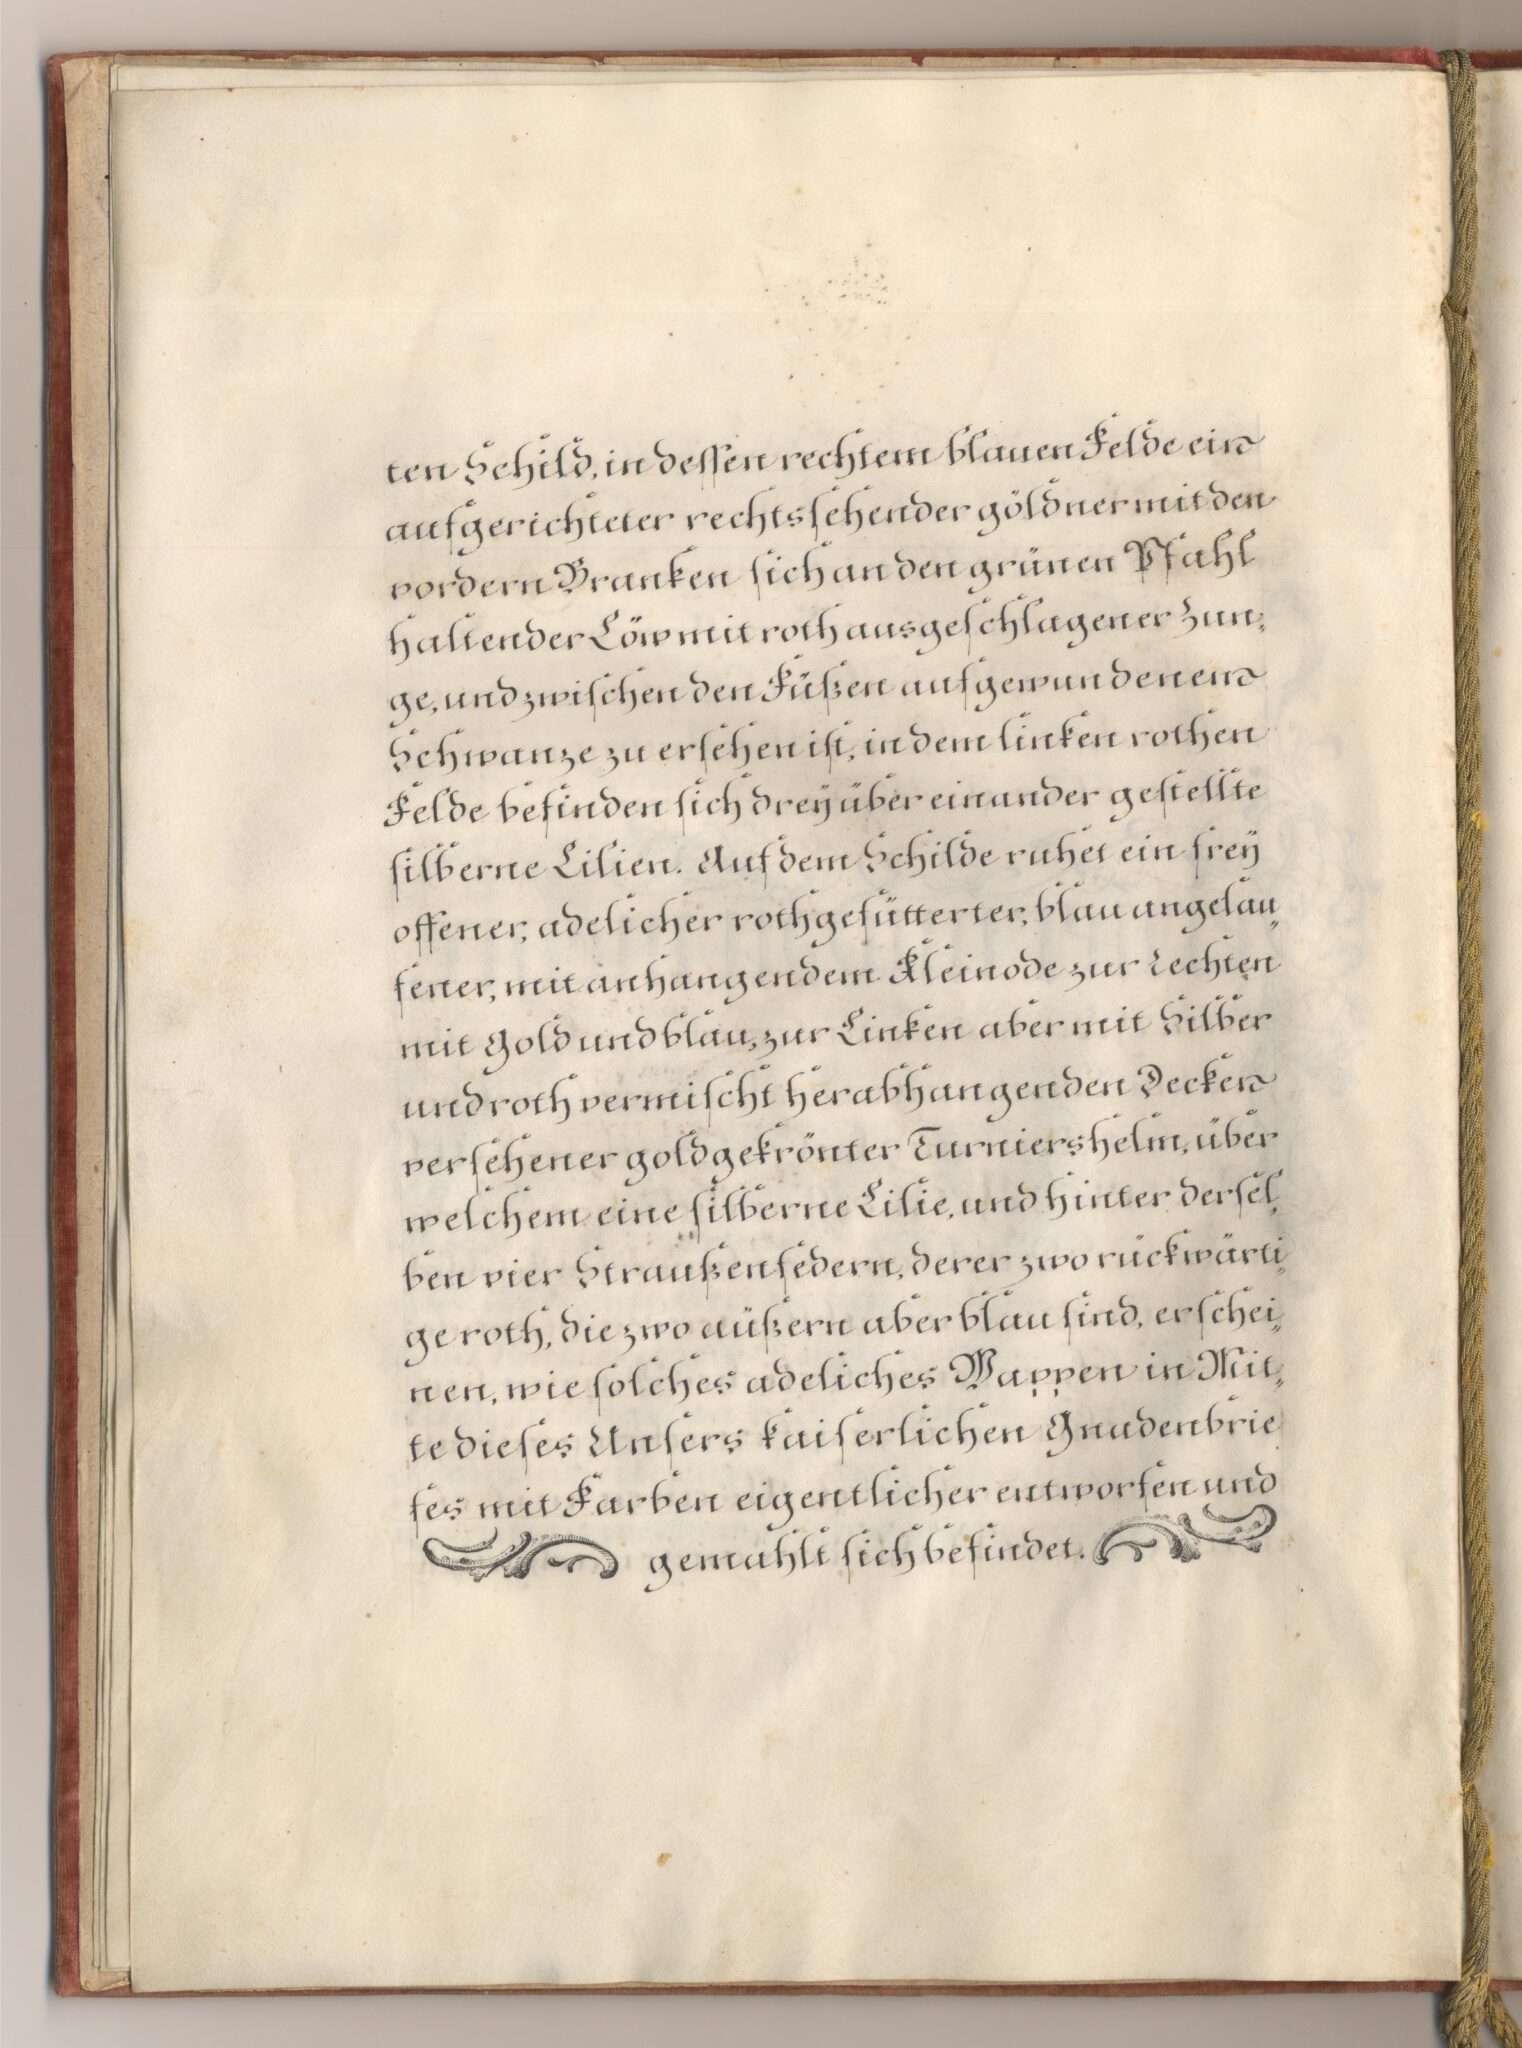 ten Schild, in dessen rechtem blauen Felde ein
aufgerichteter rechtssehender göldner mit den
vordern Branken sich an den grünen Pfahl
haltender Löw mit roth ausgeschlagener Zun-
ge, und zwischen den Füßen aufgewundenen
Schwanze zu ersehen ist, in dem linken rothen
Felde befinden sich dreÿ über einander gestellte
silberne Lilien. Auf dem Schilde ruhet ein freÿ
offener, adelicher rothgefütterter, blau angelau-
fener, mit anhangendem Kleinode zur Rechten
mit Gold und blau, zur Linken aber mit Silber
und roth vermischt herabhangenden Decken
versehener goldgekrönter Turniershelm, über
welchem eine silberne Lilie, und hinter dersel-
ben vier Straußenfedern, derer zwo rückwärti-
ge roth, die zwo äüßern aber blau sind, erschei-
nen, wie solches adeliches Wappen in Mit-
te dieses Unsers kaiserlichen Gnadenbrie
fes mit Farben eigentlicher entworfen und
gemahlt sich befindet.